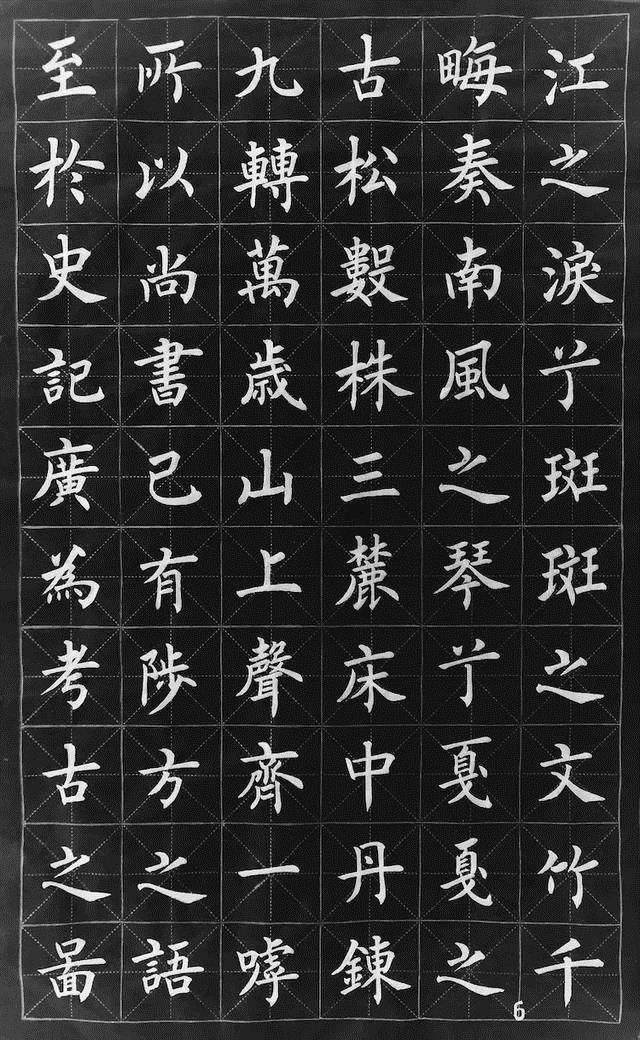 江之淚兮斑斑之文竹千
畮奏南風之琴兮戛戛之
古松數株三麓床中丹鍊
九轉萬歳山上聲齊一嘑
所以尚書已有陟方之語
至於史記廣為考古之啚
6